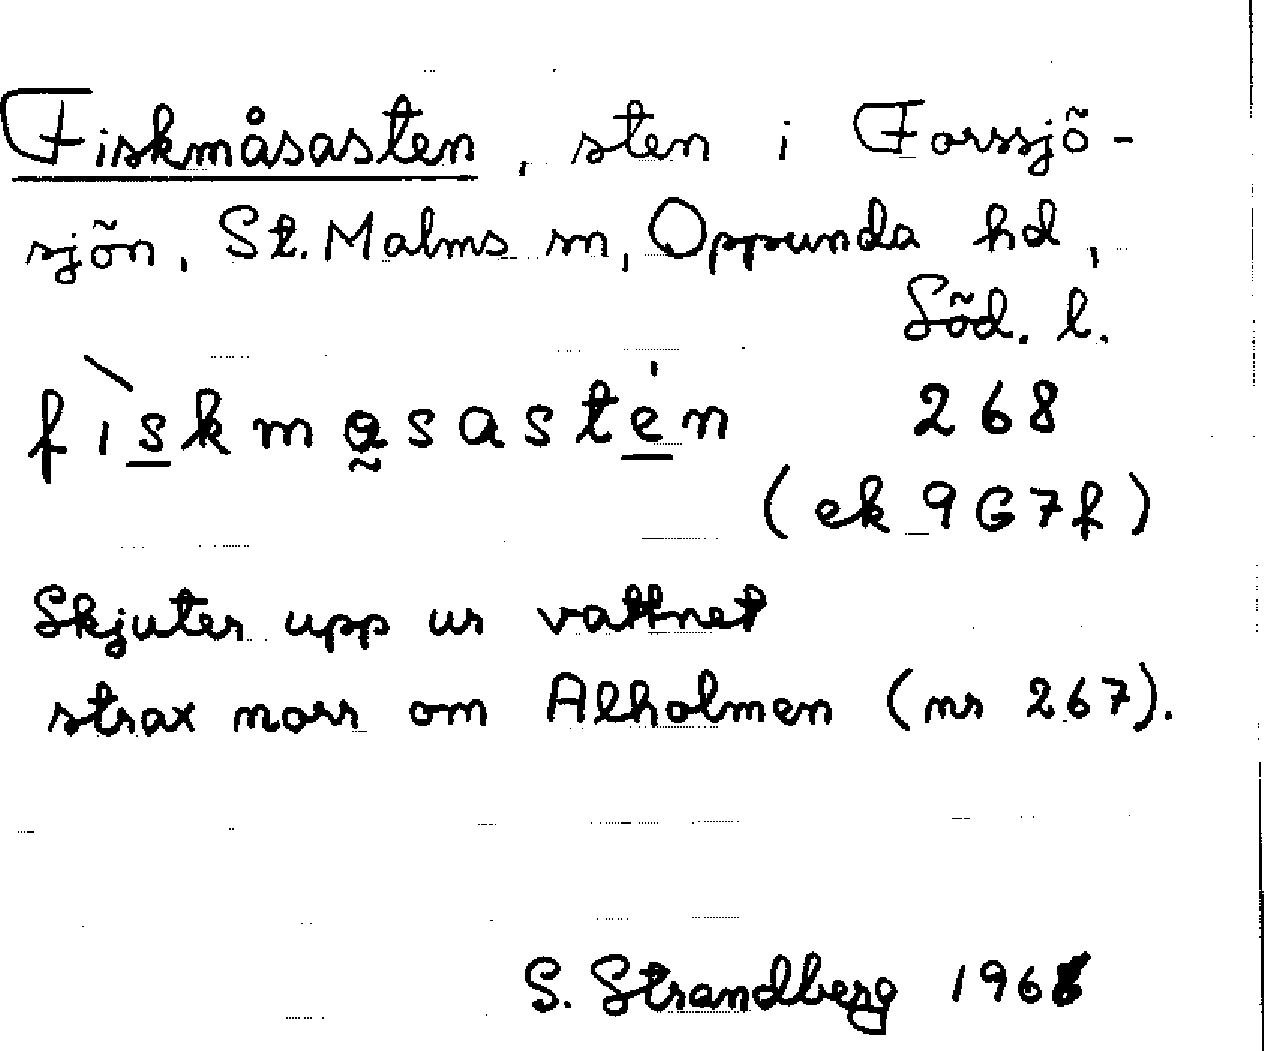 Fiskmåsasten, sten i Forssjö-
sjön, St. Malms sn, Oppunda hd,
Söd. l.
fìskmǫsasten 268
(ek 9G7f)
Skjuter upp ur vattnet
strax norr om Alholmen (nr 267).
S. Strandberg